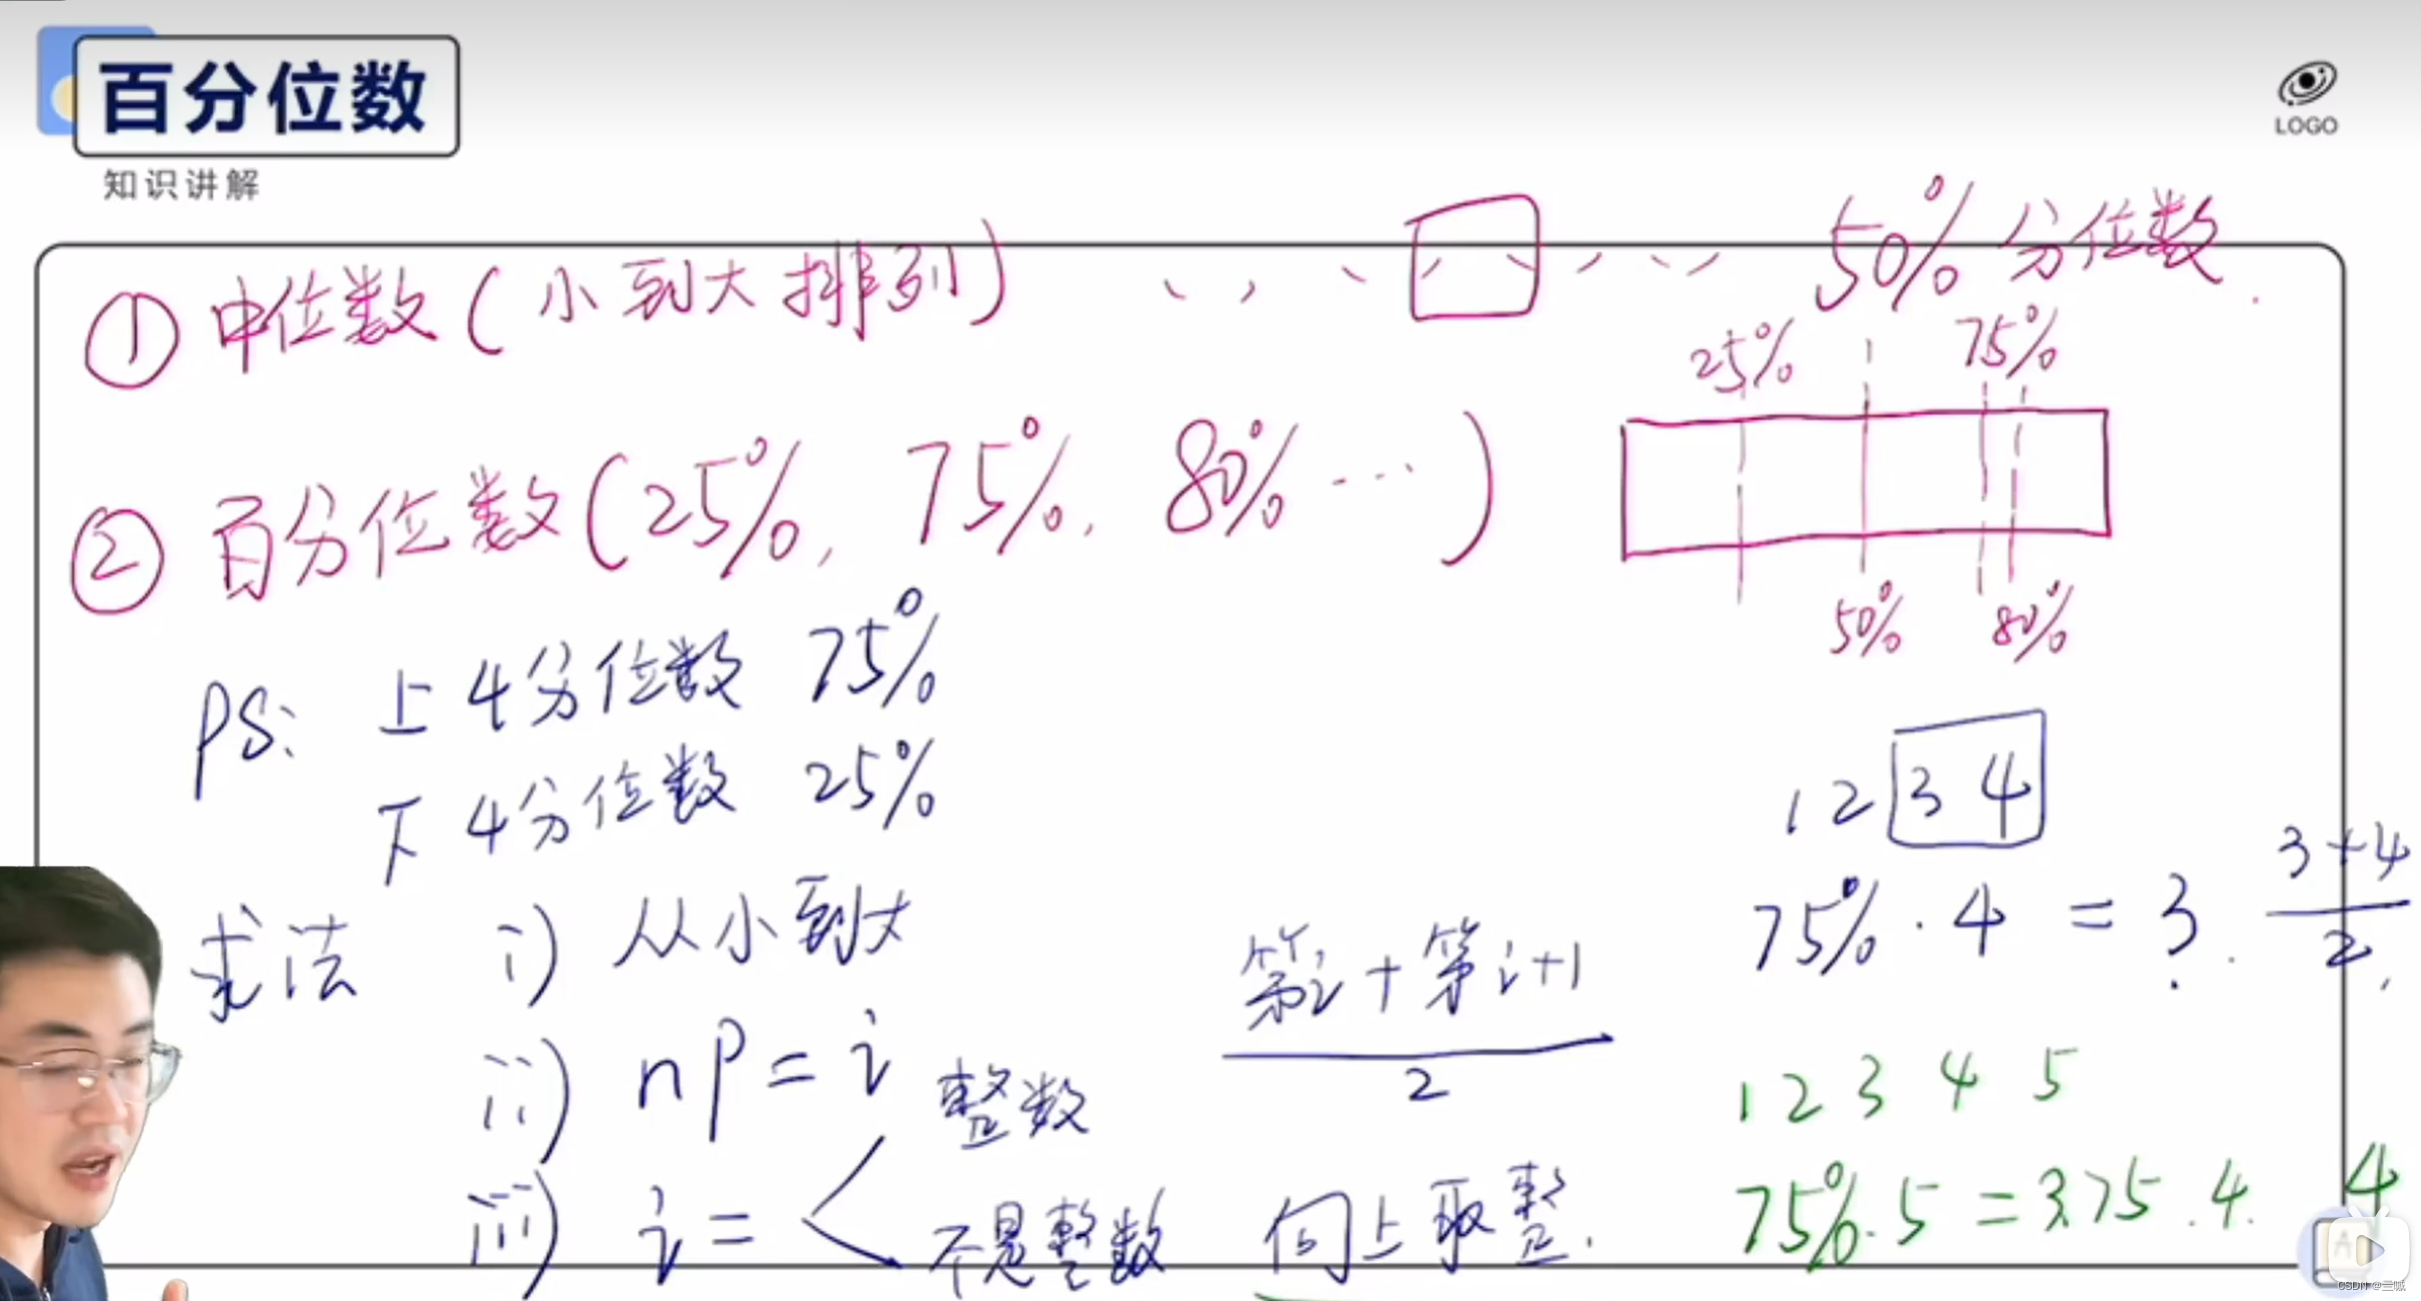 百分位数
LOGO
知识讲解
① 中位数(小到大排列) 50%分位数.
25% 75%
② 百分位数(25%, 75%, 80% …)
50% 80%
PS: 上4分位数 75%
下4分位数 25%
1 2 3 4
求法 i) 从小到大
75%·4 = 3. (3+4)/2,
(第i+第i+1)/2
ii) np=i
1 2 3 4 5
整数
iii) i=
不是整数 向上取整.
75%·5=3.75. 4. 4
CSDN @兰贼